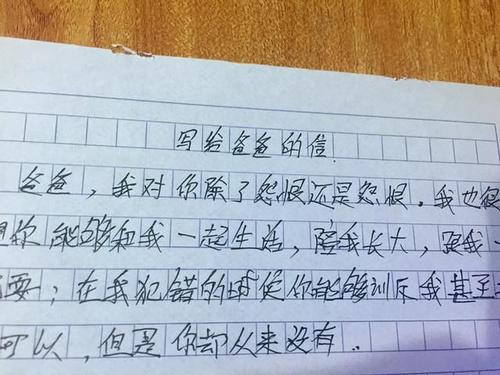 写给爸爸的信
爸爸，我对你除了怨恨还是怨恨。我也很
你能够和我一起生活，陪我长大，跟我
要；在我犯错的时候你能够训斥我甚至
可以，但是你却从来没有．